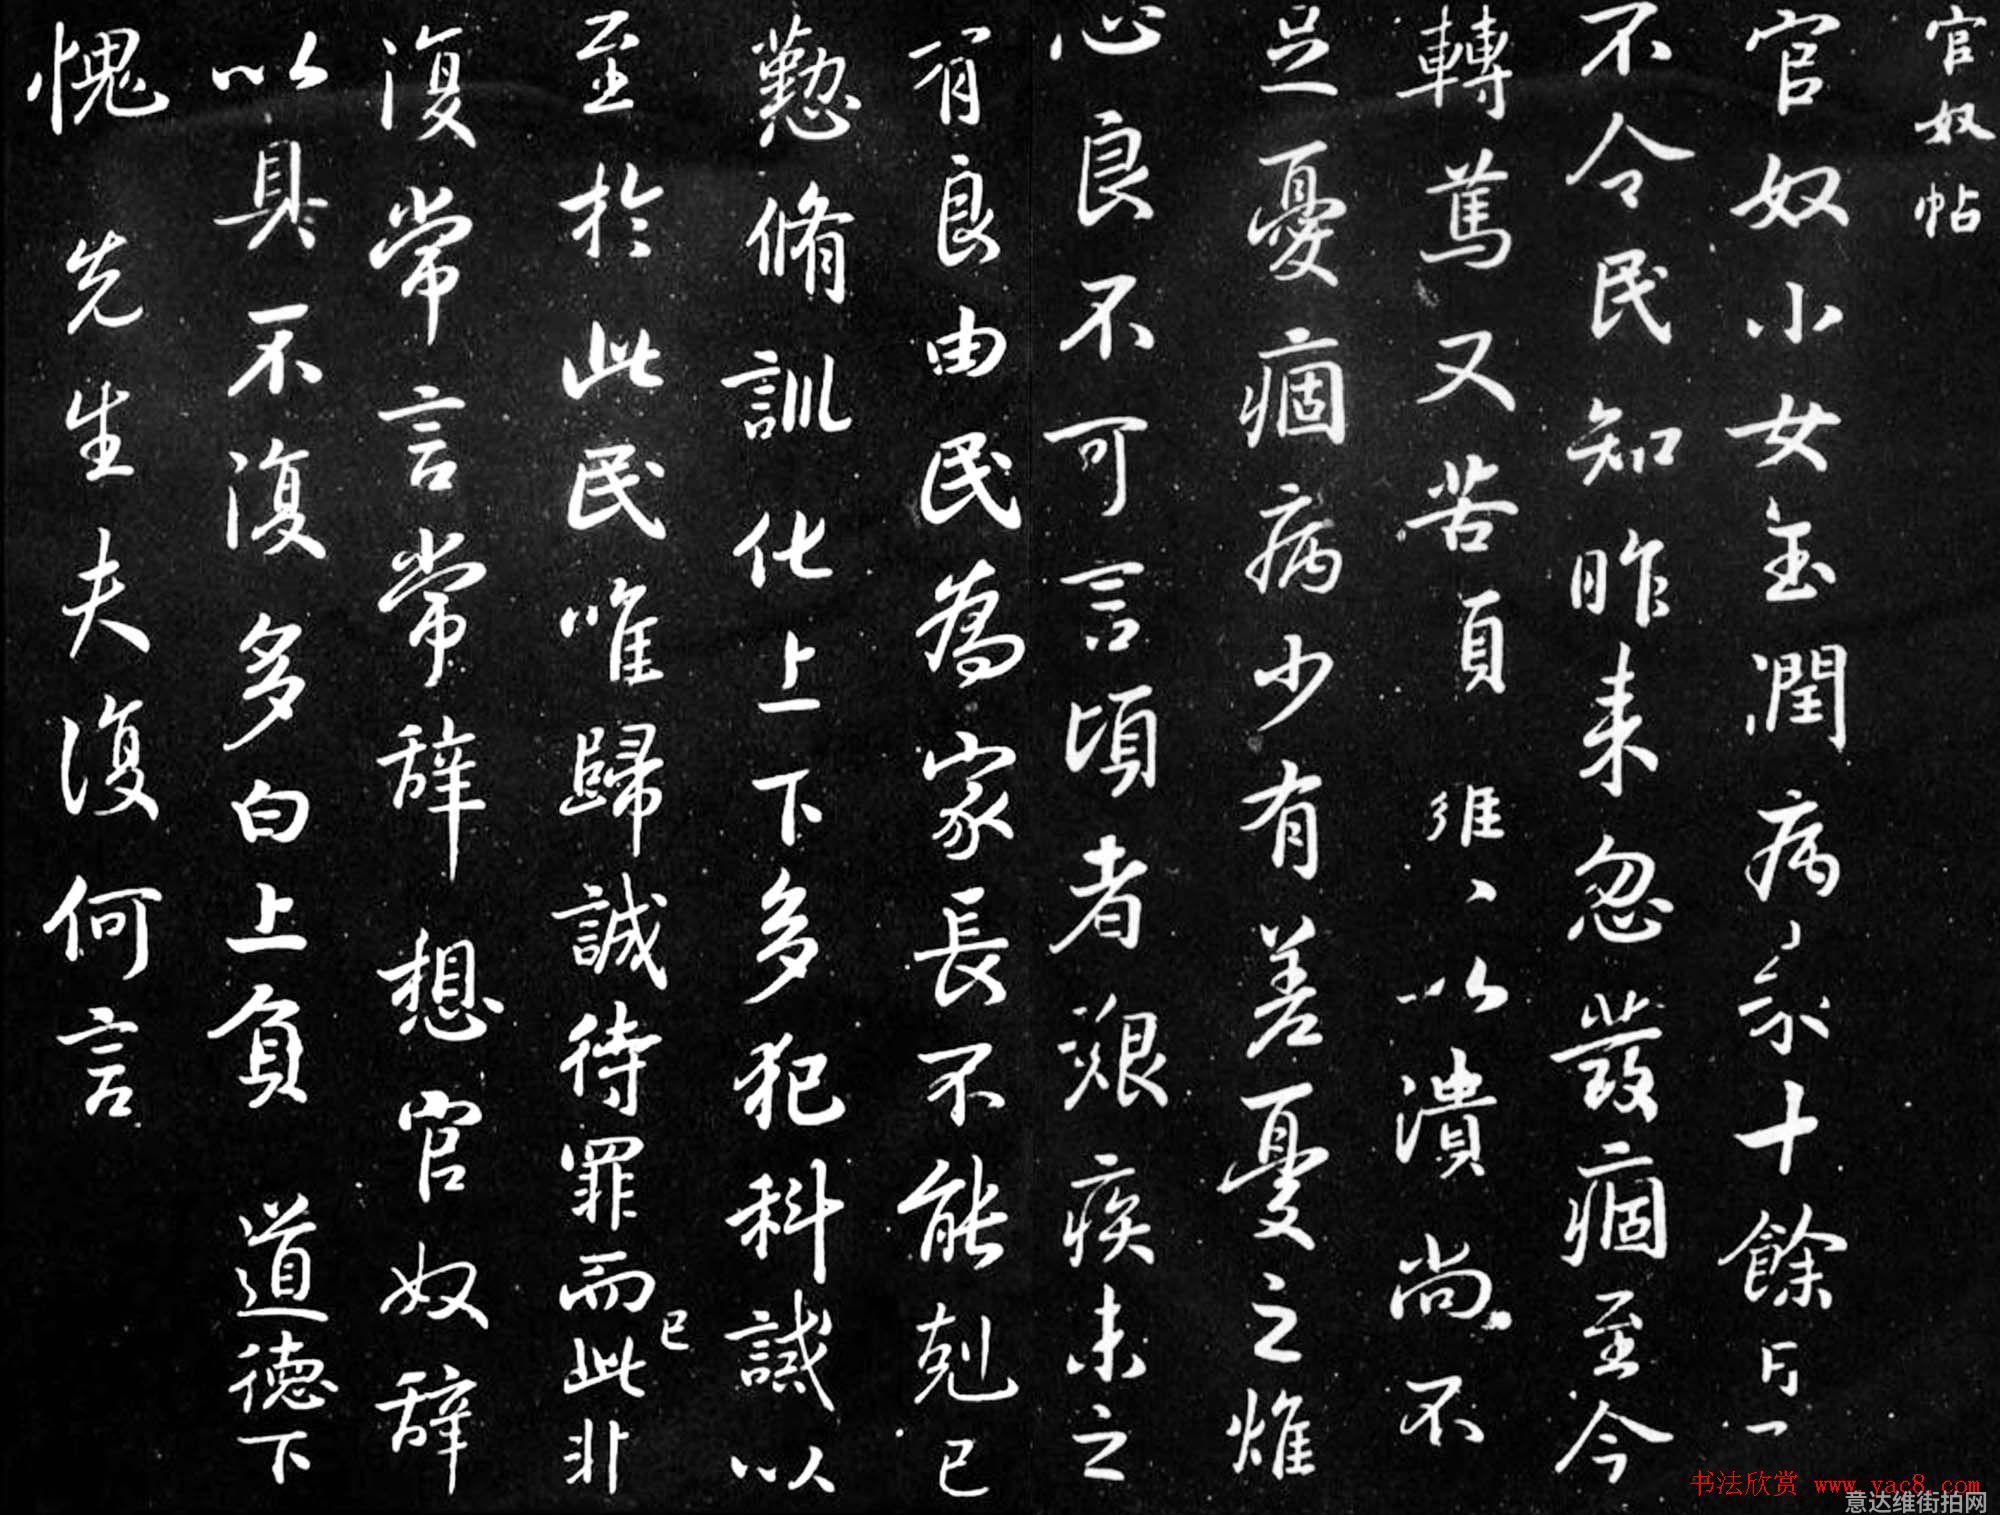 官奴帖
官奴小女玉潤病来十餘日一
不令民知昨来忽發痼至今
轉篤又苦頭癰〻以潰尚不
足憂痼病少有差憂之燋
心良不可言頃者艱疾未之
有良由民為家長不能剋己
懃脩訓化上下多犯科誡以
至於此民唯歸誠待罪而此非
已
復常言常辭想官奴辭
以具不復多白上負道德下
愧先生夫復何言
书法欣赏 www.yac8.com
意达维街拍网